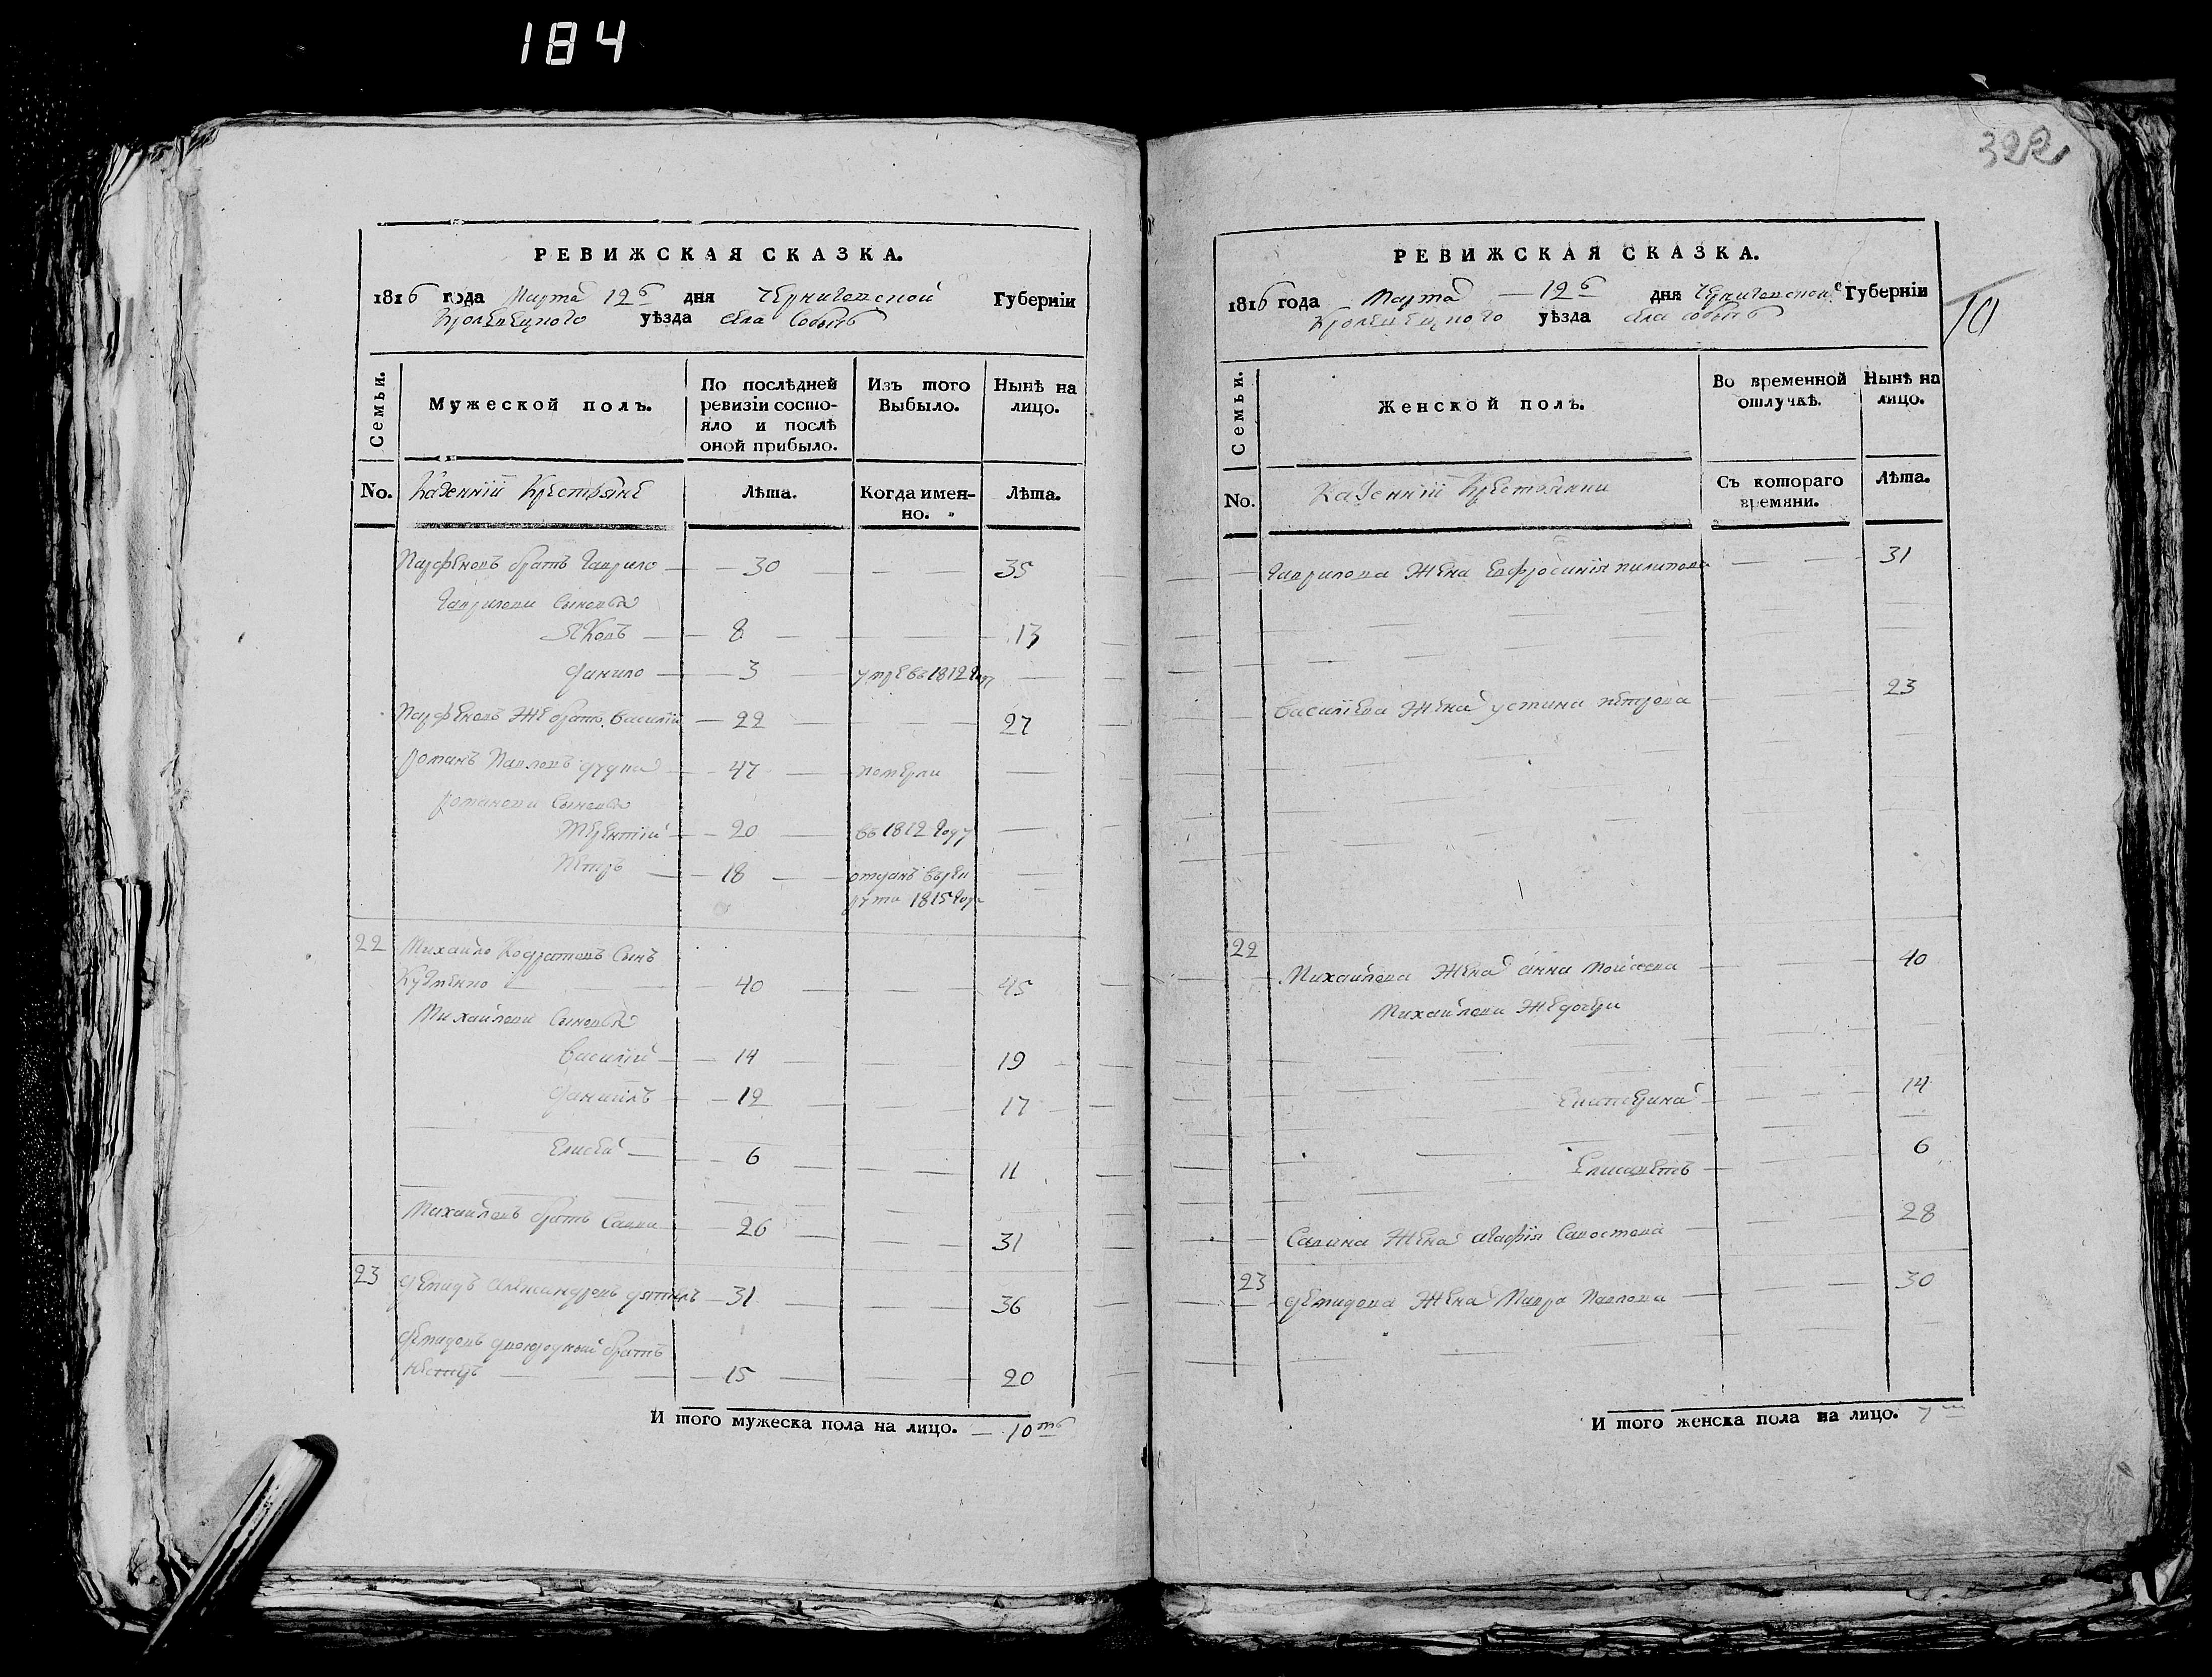 184
322
РЕВИЖСКАЯ СКАЗКА.
1816 года Марта 12 дня Черниговской Губерніи
Кролевецкого уѣзда села Собычъ
Семьи.
Мужеской полъ.
По послѣдней ревизіи состояло и послѣ оной прибыло.
Изъ того Выбыло.
Нынѣ на лицо.
No.
Казенніи Крестьяне
Лѣта.
Когда именно.
Лѣта.
Парфеновъ братъ Гаврило — 30 — 35
Гавриловы сыновья
Яковъ — 8 — 13
Данило — 3 — умре въ 1812 году
Парфеновъ же братъ Василій — 22 — 27
Романъ Павловъ — 47 — померли
Романовы сыновья
Терентій — 20 — въ 1812 году
Петръ — 18 — отданъ въ рек
рута 1815 года
22 Михайло Кодратовъ сынъ
Кузменко — 40 — 45
Михайловы сыновья
Василій — 14 — 19
Даніилъ — 12 — 17
Елисей — 6 — 11
Михайловъ братъ Савва — 26 — 31
23 Демидъ Александровъ — 31 — 36
Демидовъ двоюродный братъ
Нестеръ — 15 — 20
И того мужеска пола на лицо. — 10ть
РЕВИЖСКАЯ СКАЗКА.
1816 года Марта — 12 дня Черниговской Губерніи
Кролевецкого уѣзда села Собычъ
10
Семьи.
Женской полъ.
Во временной отлучкѣ.
Нынѣ на лицо.
No.
Казенніи Крестьянки
Съ котораго времяни.
Лѣта.
Гаврилова жена Евфросинія Пилипова — 31
Василіева жена Устина Петрова — 23
22 Михайлова жена Анна Мойсеева — 40
Михайловы же дочери
Екатерина — 14
Елисаветъ — 6
Савина жена Агафія — 28
23 Демидова жена Мавра Павлова — 30
И того женска пола на лицо. 7